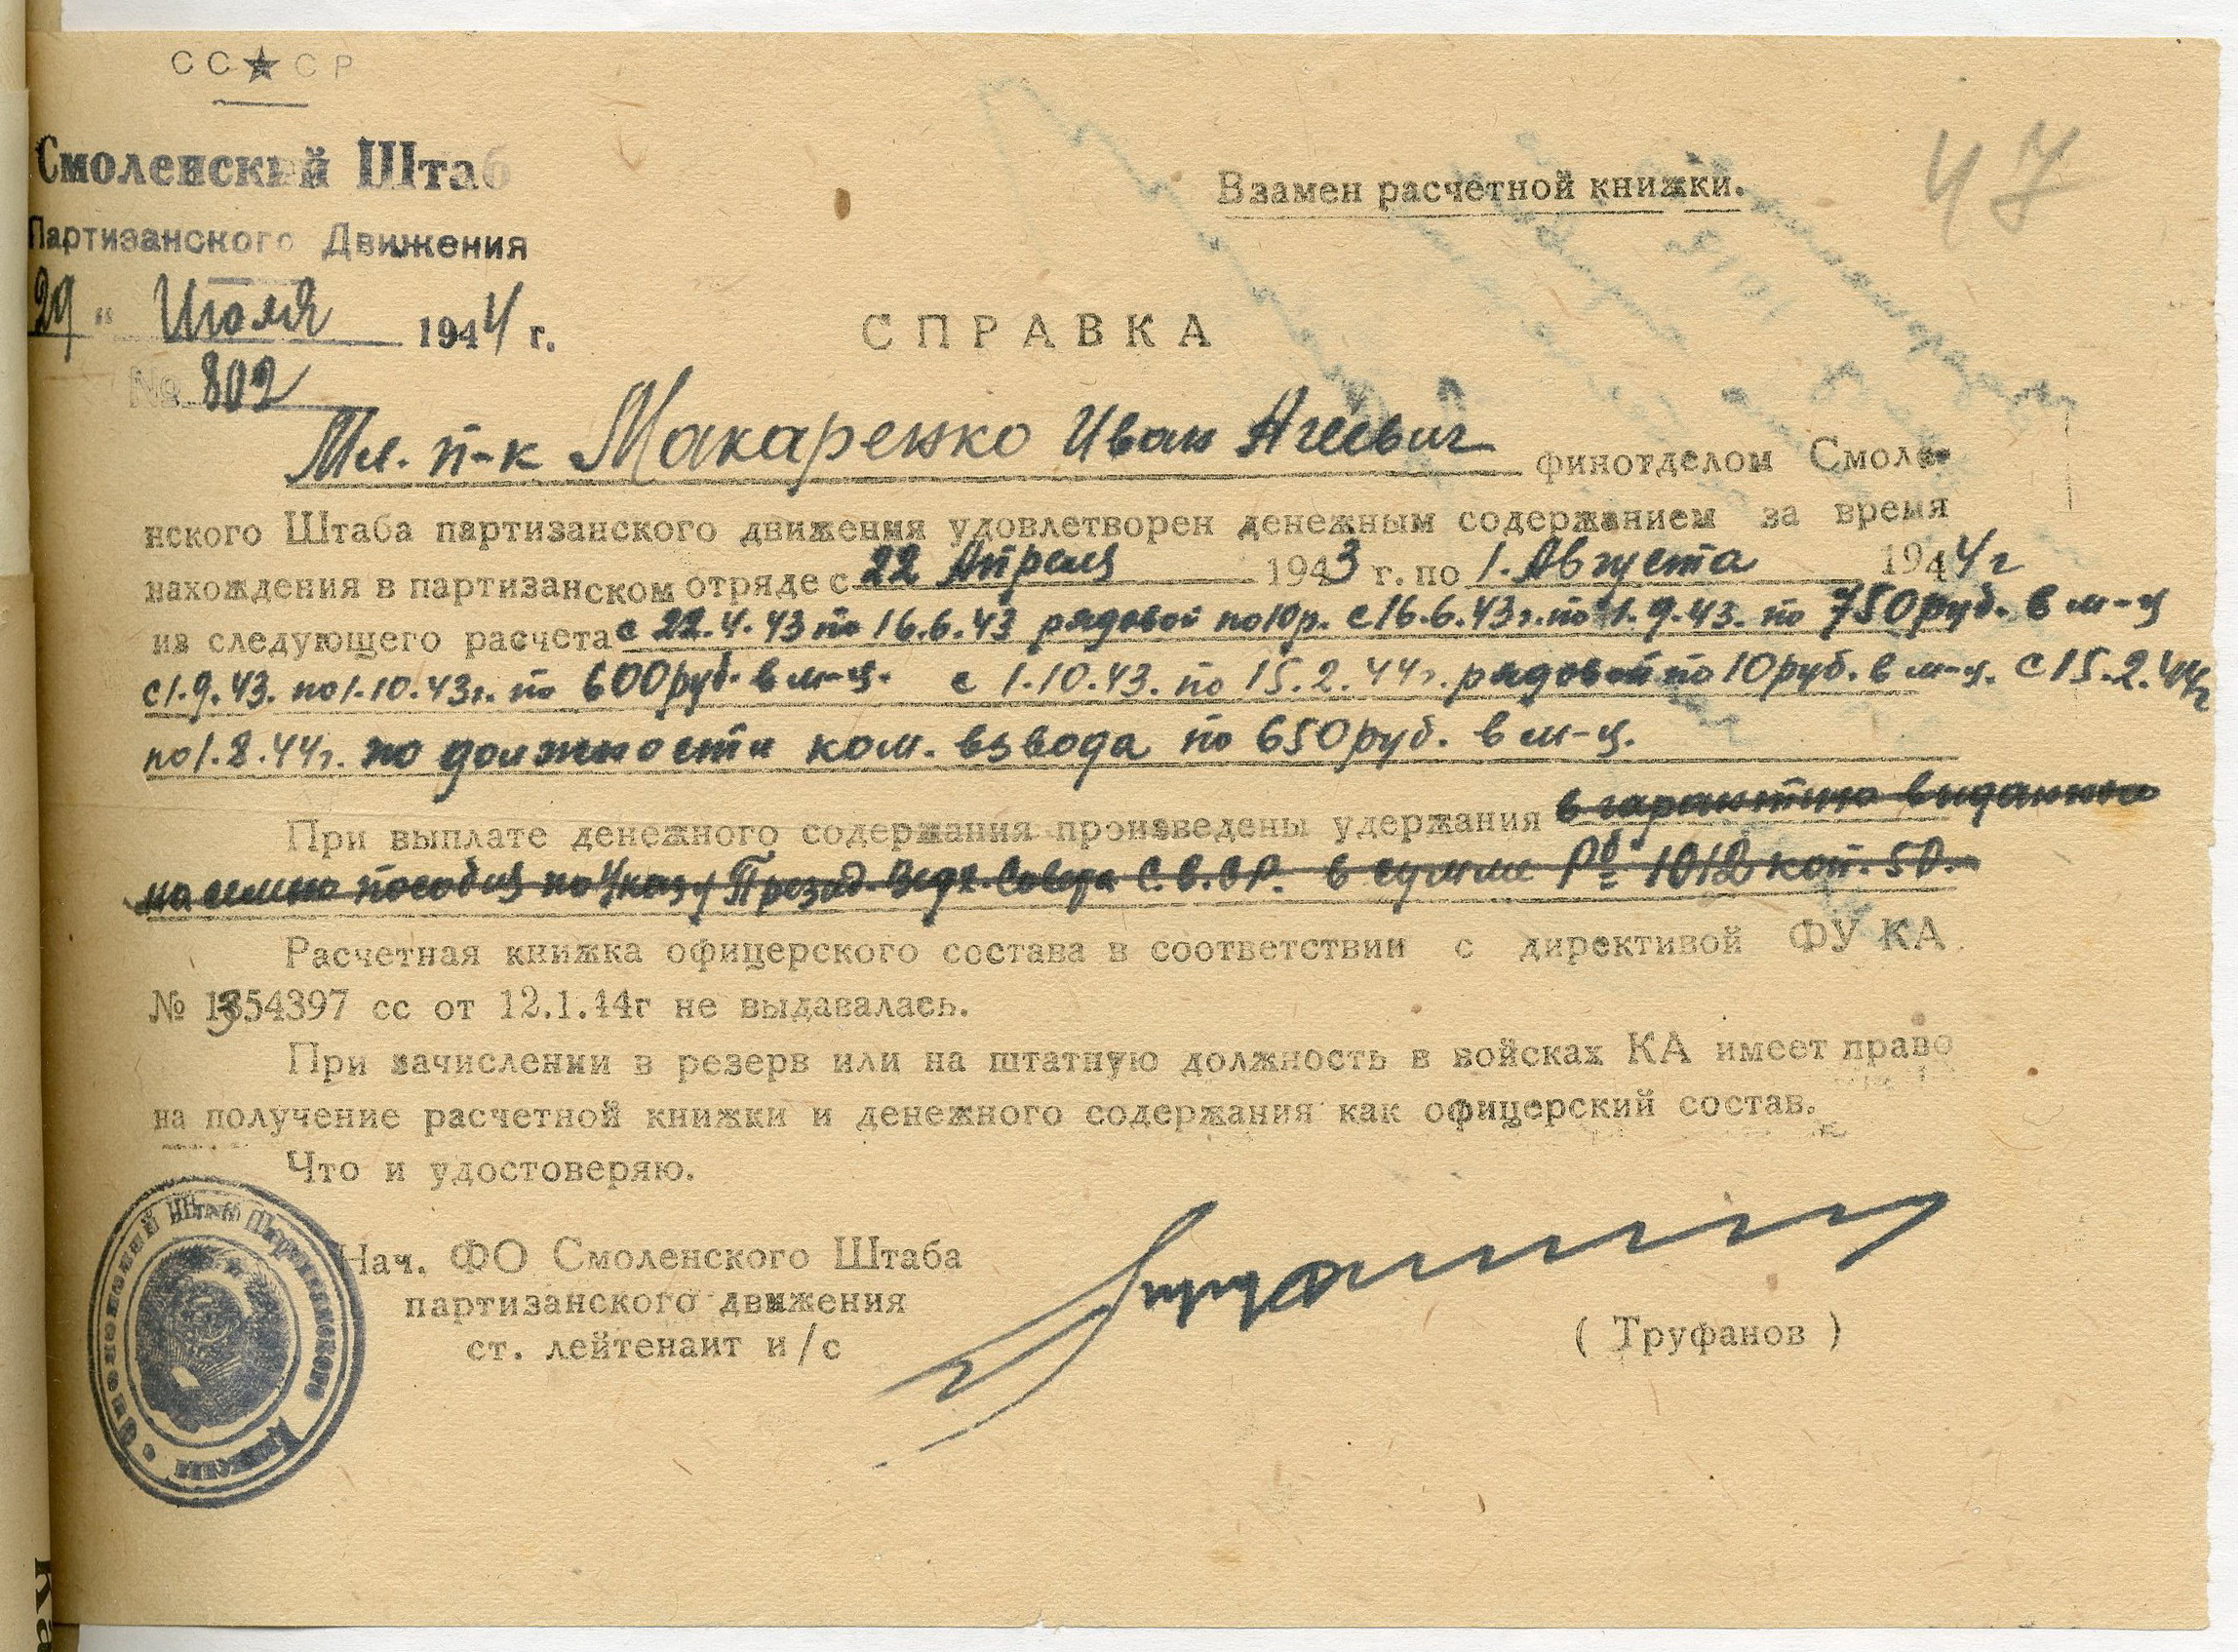 СС★СР
47
Смоленский Штаб
Партизанского Движения
29 " Июля 1944 г.
№ 802
Взамен расчетной книжки.
СПРАВКА
Мл. л-к Макаренко Иван Агеевич финотделом Смоле-
нского Штаба партизанского движения удовлетворен денежным содержанием за время
нахождения в партизанском отряде с 22 Апреля 1943 г. по 1. Августа 1944 г
из следующего расчета с 22.4.43 по 16.6.43 рядовой по 10 р. с 16.6.43 г. по 1.9.43. по 750 руб. в м-ц
с 1.9.43. по 1.10.43 г. по 600 руб. в м-ц. с 1.10.43. по 15.2.44 г. рядовой по 10 руб. в м-ц. с 15.2.44 г
по 1.8.44 г. по должности ком. взвода по 650 руб. в м-ц.
При выплате денежного содержания произведены удержания в гарантию выданного
на семью пособия по Указу Презид. Верх. Совета С.С.СР. в сумме Рб 1012 коп. 50.
Расчетная книжка офицерского состава в соответствии с директивой ФУ КА
№ 1354397 сс от 12.1.44г не выдавалась.
При зачислении в резерв или на штатную должность в войсках КА имеет право
на получение расчетной книжки и денежного содержания как офицерский состав.
Что и удостоверяю.
Нач. ФО Смоленского Штаба
партизанского движения
ст. лейтенант и/с
( Труфанов )
Смоленский Штаб Партизанского Движения
Ка